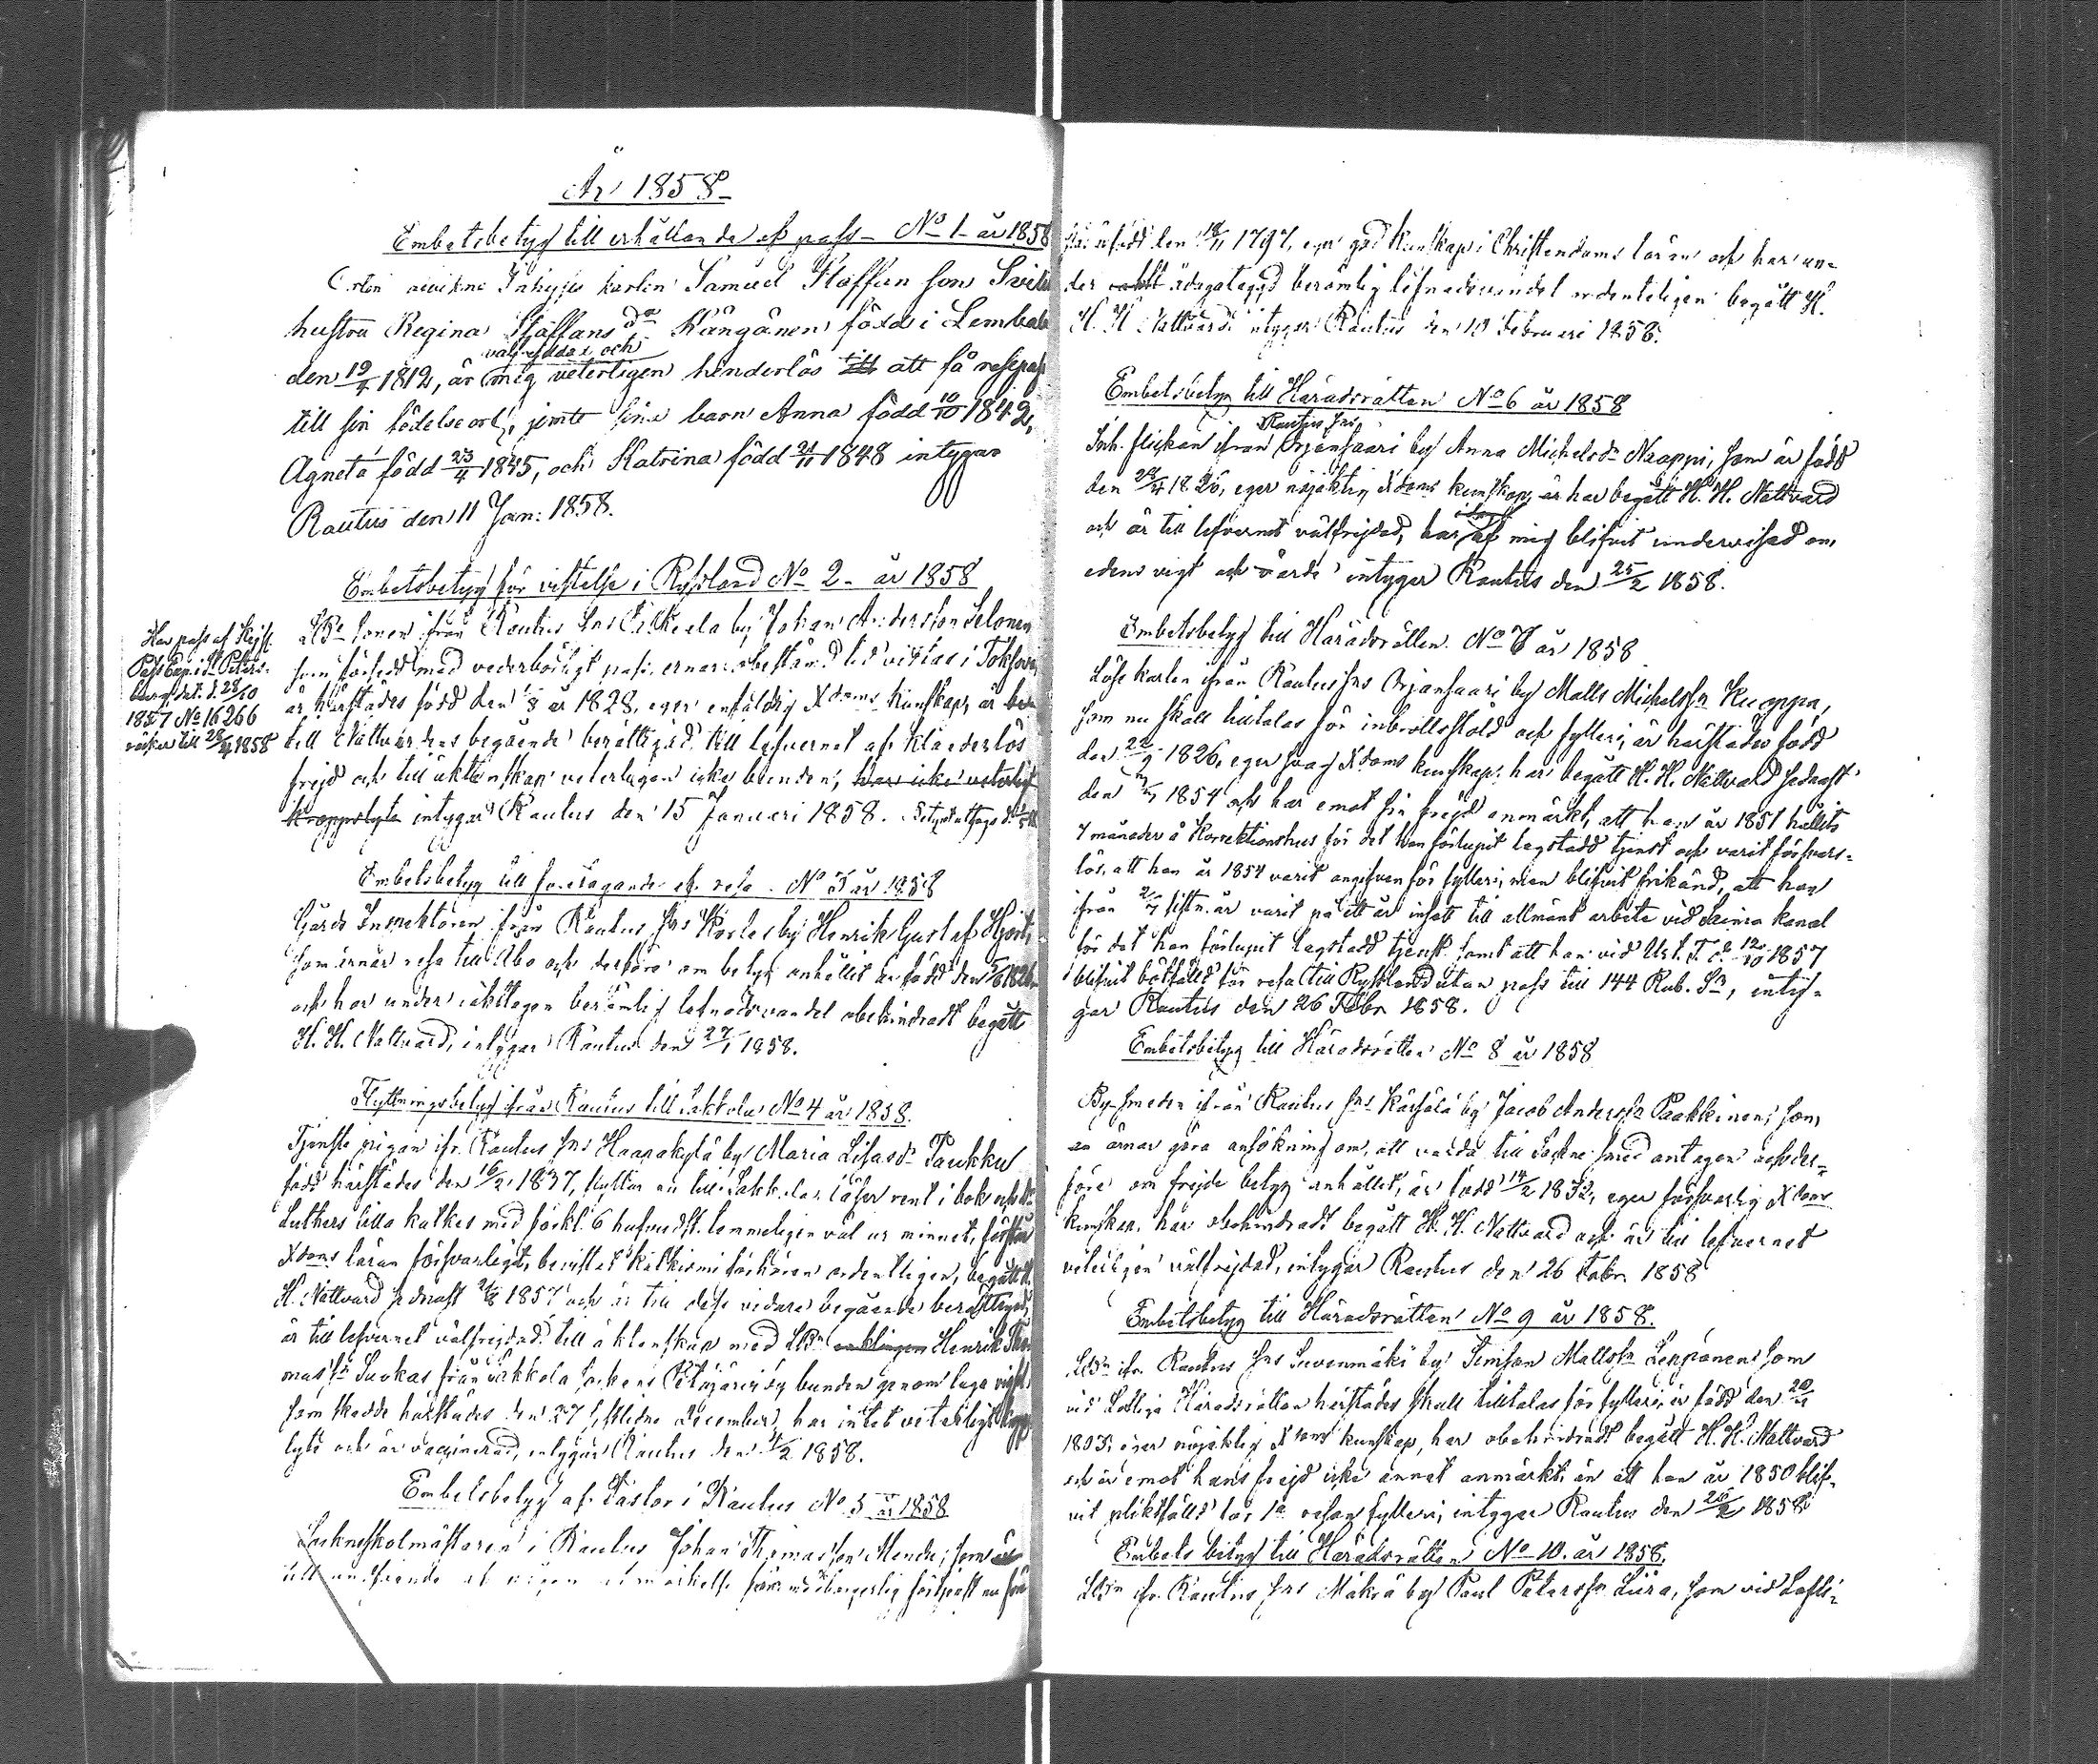 År 1858
Embetsbetyg till erhållande af pass No 1 år 1858
Inhyses karlen Samuel Staffan son
hustru Regina Staffans dr Kängänen född i Lembala
välfrejdad och
den 19/4 1812, är mig veterligen hinderlös till att få resepass
till sin födelseort, jemte sine barn Anna född 10/10 1842,
Agneta född 23/4 1845, och Katrina född 21/11 1848 intygar
Rautus den 11 Jan: 1858.
Embetsbetyg för vistelse i Ryssland No 2 år 1858
Har pass af
Pass Exp. i St Peters-
burg dat. d. 28/10
1857 No 16266
räcker till 28/4 1858
sonen från Rautus Sns by Johan Andersson Selonen
som försedd med vederbörligt pass ernar obestämd tid vistas i Toksova,
är härstädes född den år 1828, eger enfaldig Xdoms kunskap, är
till Nattvardens begående berättigad till lefvernet af klanderlös
frejd och till äktenskap veterligen icke bunden, har icke veterligt
kroppslyte intygar Rautus den 15 Januari 1858.
Embetsbetyg till företagande af resa No 3 år 1858
Gårds Inspektoren från Rautus Sns by Henrik Gustaf Hjort,
som ärnar resa till Åbo och derföre om betyg anhållit är född den
och har under iakttagen berömlig lefnadsvandel obehindradt begått
H. H. Nattvard, intygar Rautus den 27/1 1858.
Flyttningsbetyg från Rautus till Sakkola No 4 år 1858.
Tjenste pigan ifr. Rautus Sns Haapakylä by Maria Lisa dr Paukku
född härstädes den 16/2 1837, flyttar nu till Sakkola, läser rent i bok och Dr
Luthers lilla katkes med förkl. 6 hufvudst. temmeligen väl ur minnet, förstår
Xdoms läran försvarligt, bevistat förhören ordentligen, begått H.
H. Nattvard sednast 1857 och är till dess vidare begående berättigad,
är till lefvernet välfrejdad, till äktenskap med Henrik Tho-
mas Sn Suokas från Sakkola Sockens Petäjärvi by bunden genom laga vigsel,
som skedde härstädes den 27 sistledne December, har intet veterligt kropps-
lyte och är vaccinerad, intygar Rautus den 4/2 1858.
Embetsbetyg af Pastor i Rautus No 5 år 1858
Sockneskolmästaren i Rautus Johan Thomasson Mendu; som är
till
är född den 18/11 1797, eger god kunskap i Christendoms läran och har un-
der ådagalagd berömlig lefnadsvandel ordenteligen begått H.
H. Nattvard intygar Rautus den 10 Februari 1858.
Embetsbetyg till Häradsrätten No 6 år 1858
Rautus Sns
Inh. flickan ifrån Orjansaari by Anna Michelsdr Naappi, som är född
den 1826, eger nöjaktig Xdoms kunskap, är har begått H. H. Nattvard
och är till lefvernet välfrejdad, har af mig blifvit undervisad om
edens vigt och värde intygar Rautus den 25/2 1858.
Embetsbetyg till Häradsrätten No 7 år 1858
Löse karlen ifrån Rautus Sns Orjansaari by Matts Michelssn Kuoppa,
som nu skall tilltalas för inbrottsstöld och fylleri, är härstädes född
den 22/9 1826, eger svag Xdoms kunskap, har begått H. H. Nattvard sednast
den 1854 och har emot sin frejd anmärkt, att han år 1851 hållits
7 månader å Korrektionshus för det han förlupit lagstadd tjenst och varit försvars-
lös, att han år 1854 varit angifven för fylleri, men blifvit frikänd, att han
ifrån 2/7 sistn. år varit på ett år insatt till allmänt arbete vid Saima kanal
för det han förlupit lagstadd tjenst samt att han vid Urt. T. d. 12/10 1857
blifvit bötfälld för resa till Ryssland utan pass till 144 Rub. Sr, inty-
gar Rautus den 26 Febr. 1858.
Embetsbetyg till Häradsrätten No 8 år 1858
By-smeden ifrån Rautus Sns by Jacob Anderssn Paakkinen; som
nu ärnar göra ansökning om, att varda till Sockne smed antagen och der-
före om frejde betyg anhållit, är född 14/2 1832, eger försvarlig Xdoms
kunskap, har obehindradt begått H. H. Nattvard och är till lefvernet
veterligen välfrejdad, intygar Rautus den 26 Febr. 1858
Embetsbetyg till Häradsrätten No 9 år 1858.
ifr. Rautus Sns Suvenmäki by Simson Mattssn Leppänen som
vid Lofliga Häradsrätten härstädes skall tilltalas för fylleri, är född den
1805, eger nöjaktig Xdoms kunskap, har obehindradt begått H. H. Nattvard
och är emot hans frejd icke annat anmärkt, än att han år 1850 blif-
vit pliktfälld för 1a resan fylleri, intygar Rautus den 26/2 1858
Embets betyg till Häradsrätten No 10. år 1858.
ifr. Rautus Sns Mäkrä by Paul Peterssn Liira, som vid Lofli-